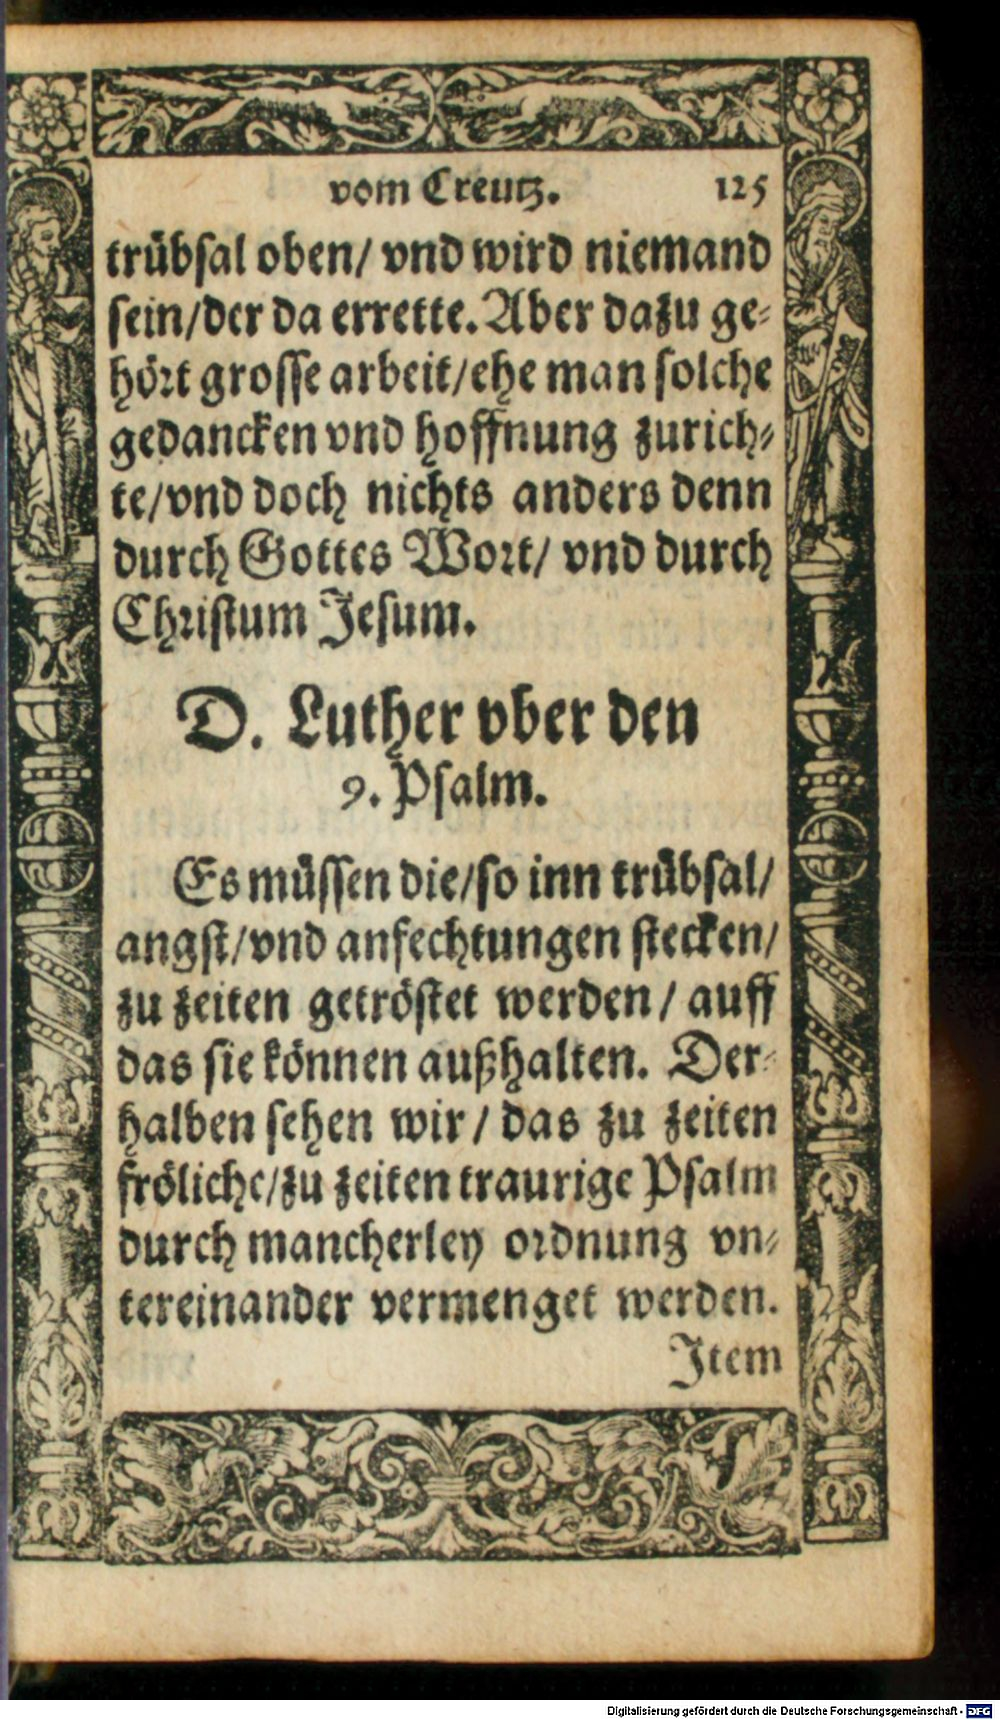 vom Creutz. 125
trübsal oben/ vnd wird niemand
sein/der da errette. Aber dazu ge-
hört grosse arbeit/ehe man solche
gedancken vnd hoffnung zurich-
te/vnd doch nichts anders denn
durch Gottes Wort/ vnd durch
Christum Jesum.
D. Luther vber den
9. Psalm.
Es müssen die/so inn trübsal/
angst/vnd anfechtungen stecken/
zu zeiten getröstet werden/ auff
das sie können außhalten. Der-
halben sehen wir/ das zu zeiten
fröliche/zu zeiten traurige Psalm
durch mancherley ordnung vn-
tereinander vermenget werden.
Item
Digitalisierung gefördert durch die Deutsche Forschungsgemeinschaft - DFG